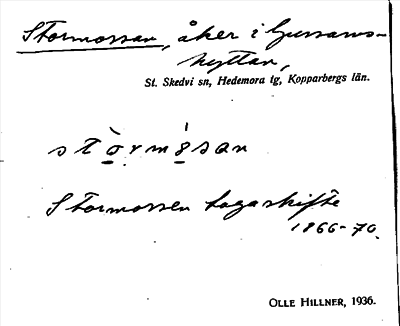 Stormossan, åker i Gussarvs-
hyttan,
St. Skedvi sn, Hedemora tg, Kopparbergs län.
stòrmósan
Stormossen lagaskifte
1866-70.
OLLE HILLNER, 1936.